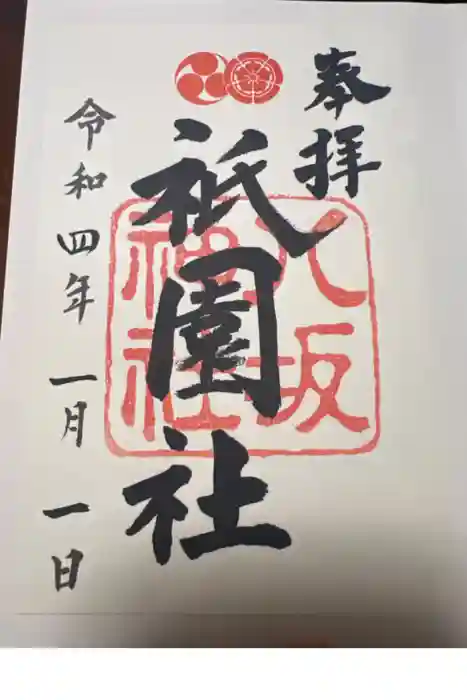 奉拝
祇園社
八坂
神社
令和四年 一月 一日